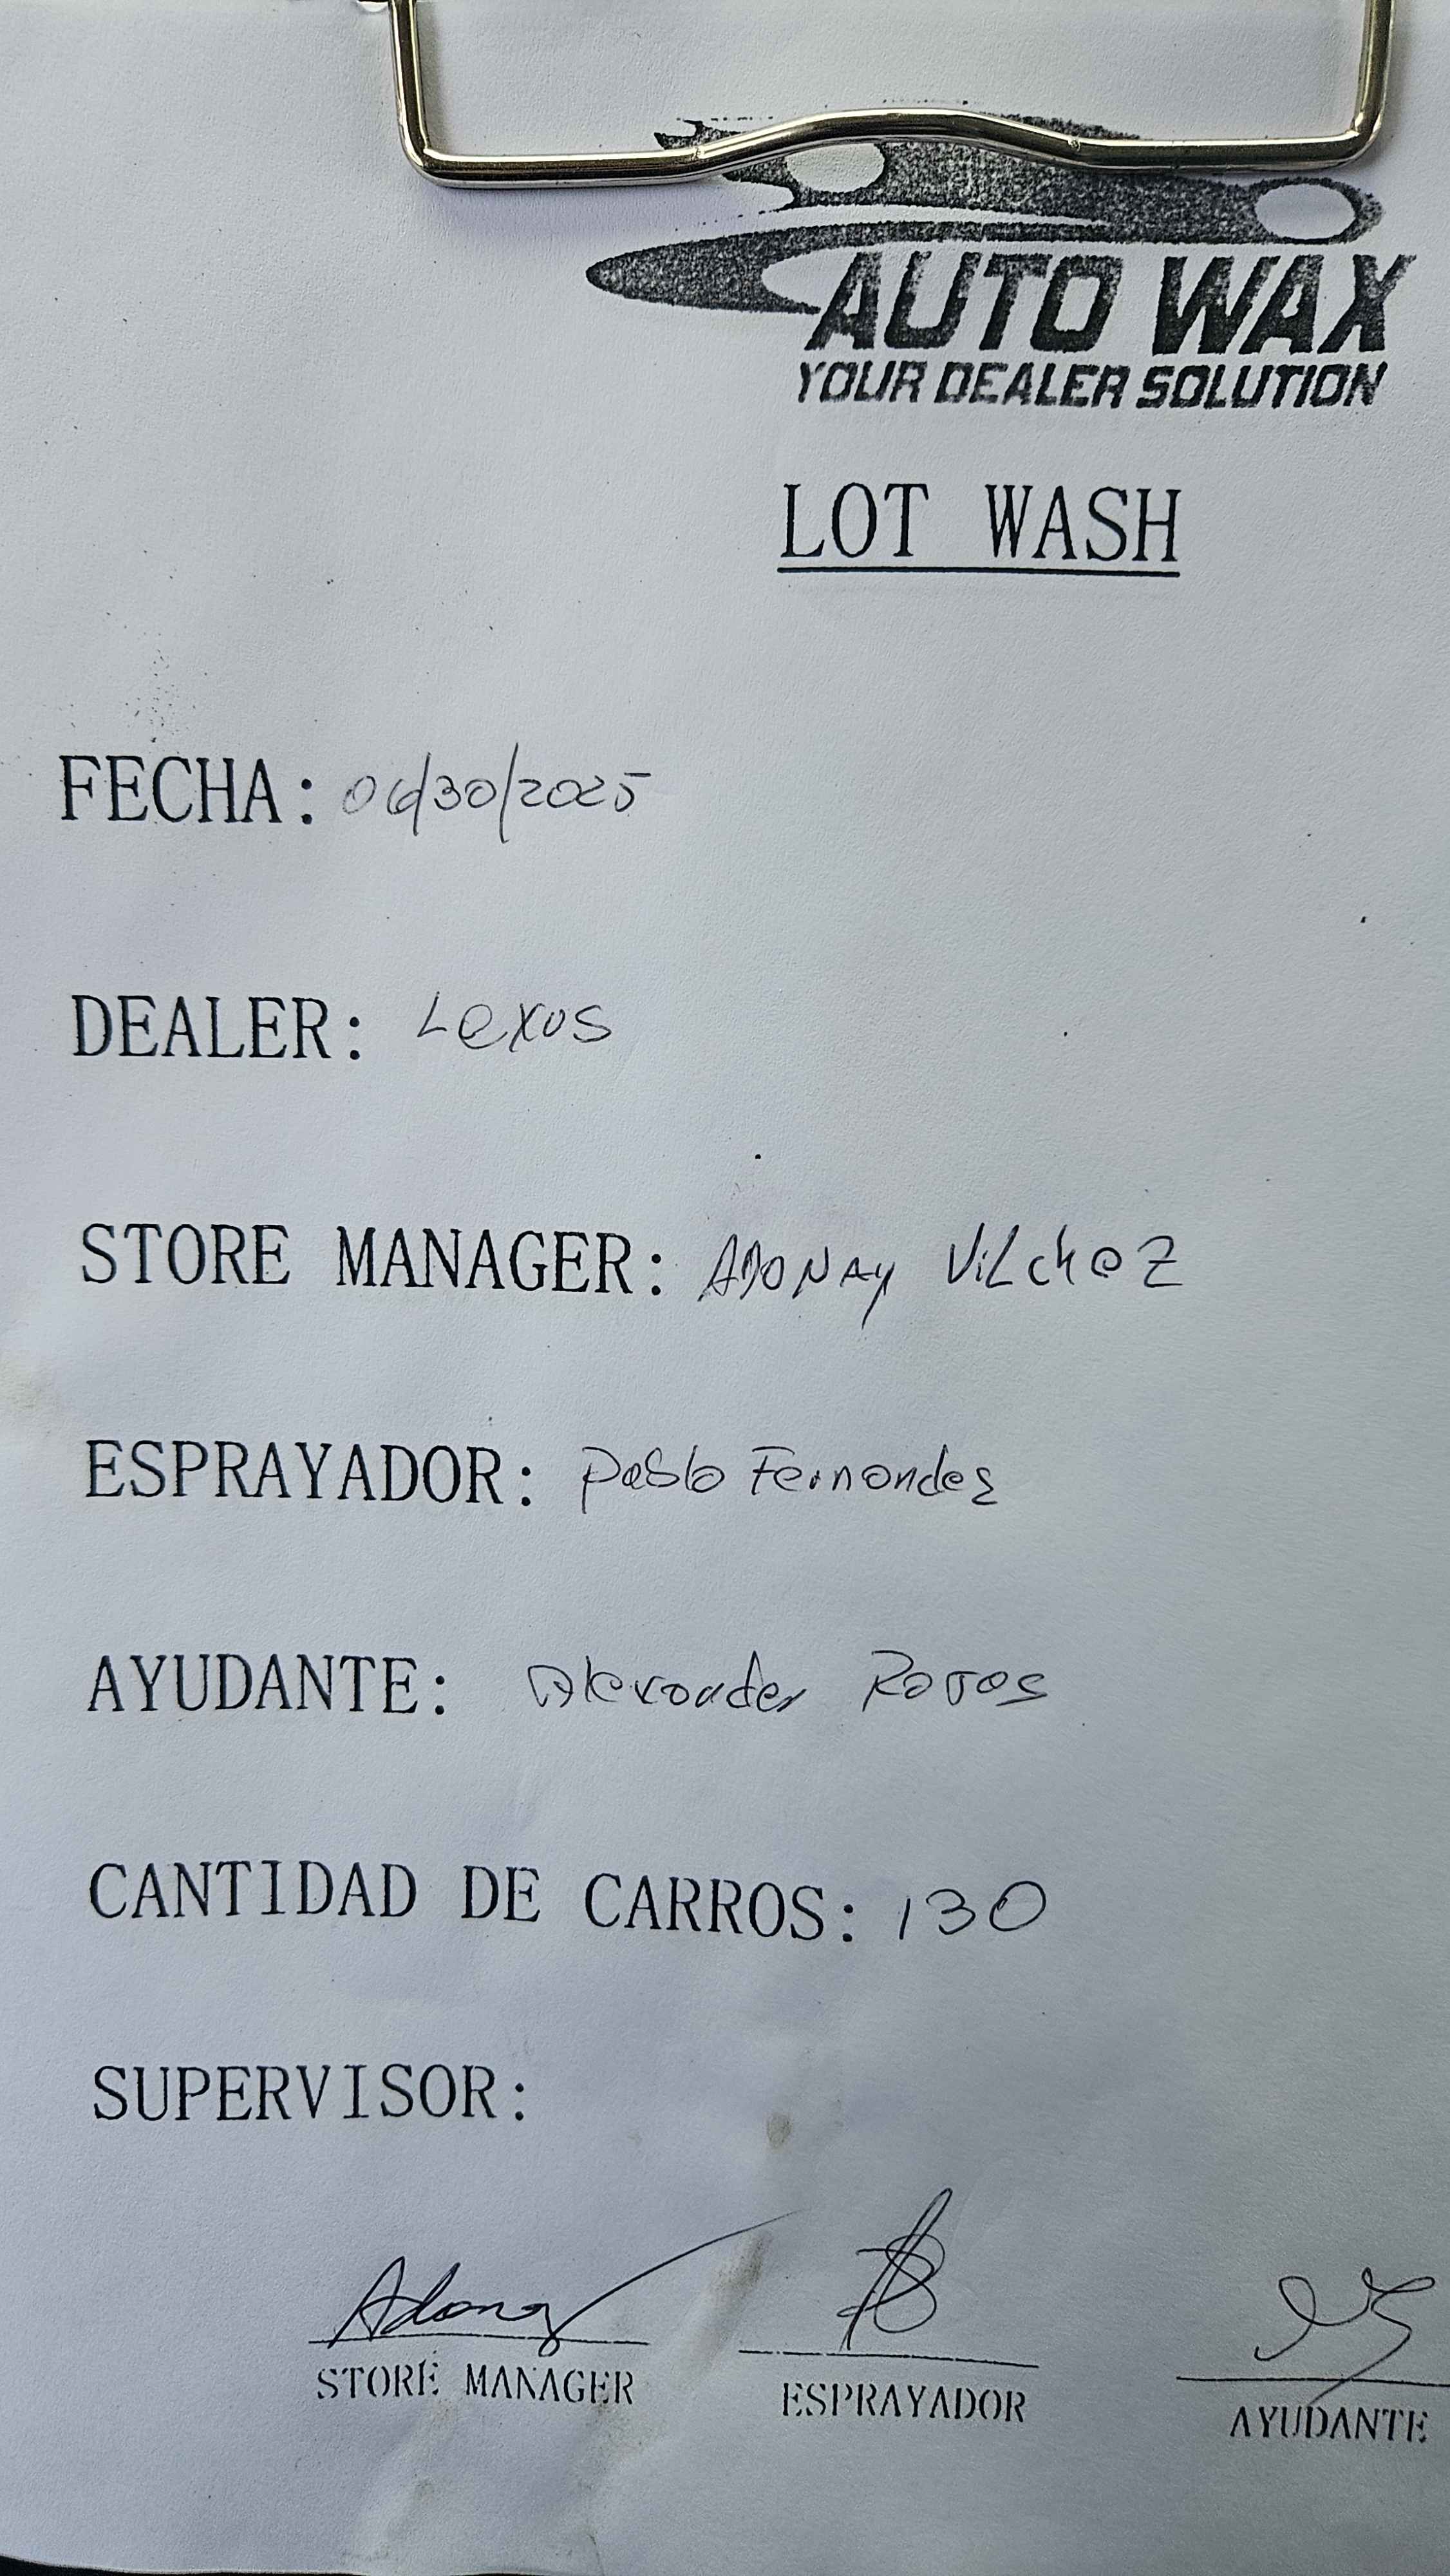 AUTO WAX
YOUR DEALER SOLUTION
LOT WASH
FECHA: 06/30/2025
DEALER: Lexus
STORE MANAGER: ADONAY VILcheZ
ESPRAYADOR: Pablo Fernandez
AYUDANTE: Alexander Rojas
CANTIDAD DE CARROS: 130
SUPERVISOR:
Adonay
STORE MANAGER ESPRAYADOR AYUDANTE